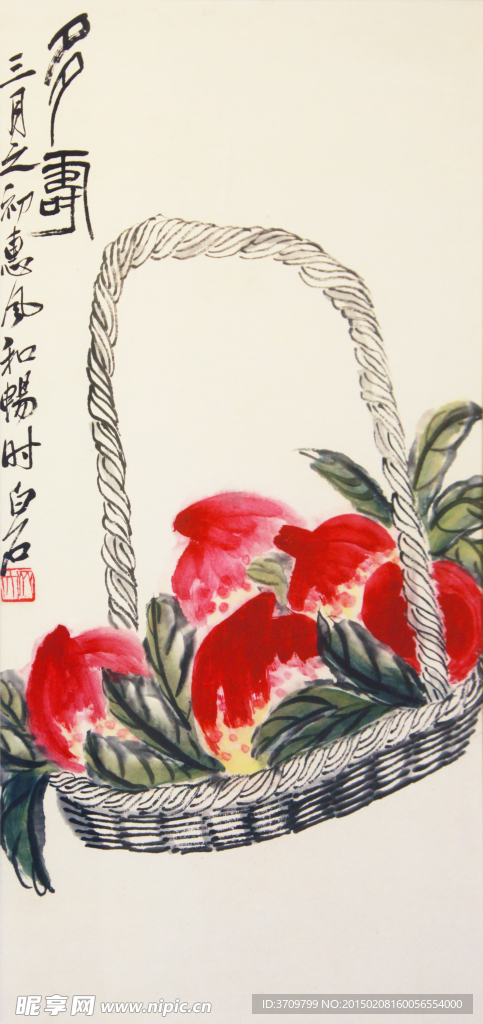 多壽
三月之初惠风和暢时白石
昵享网 www.nipic.cn
ID:3709799 NO:20150208160056554000